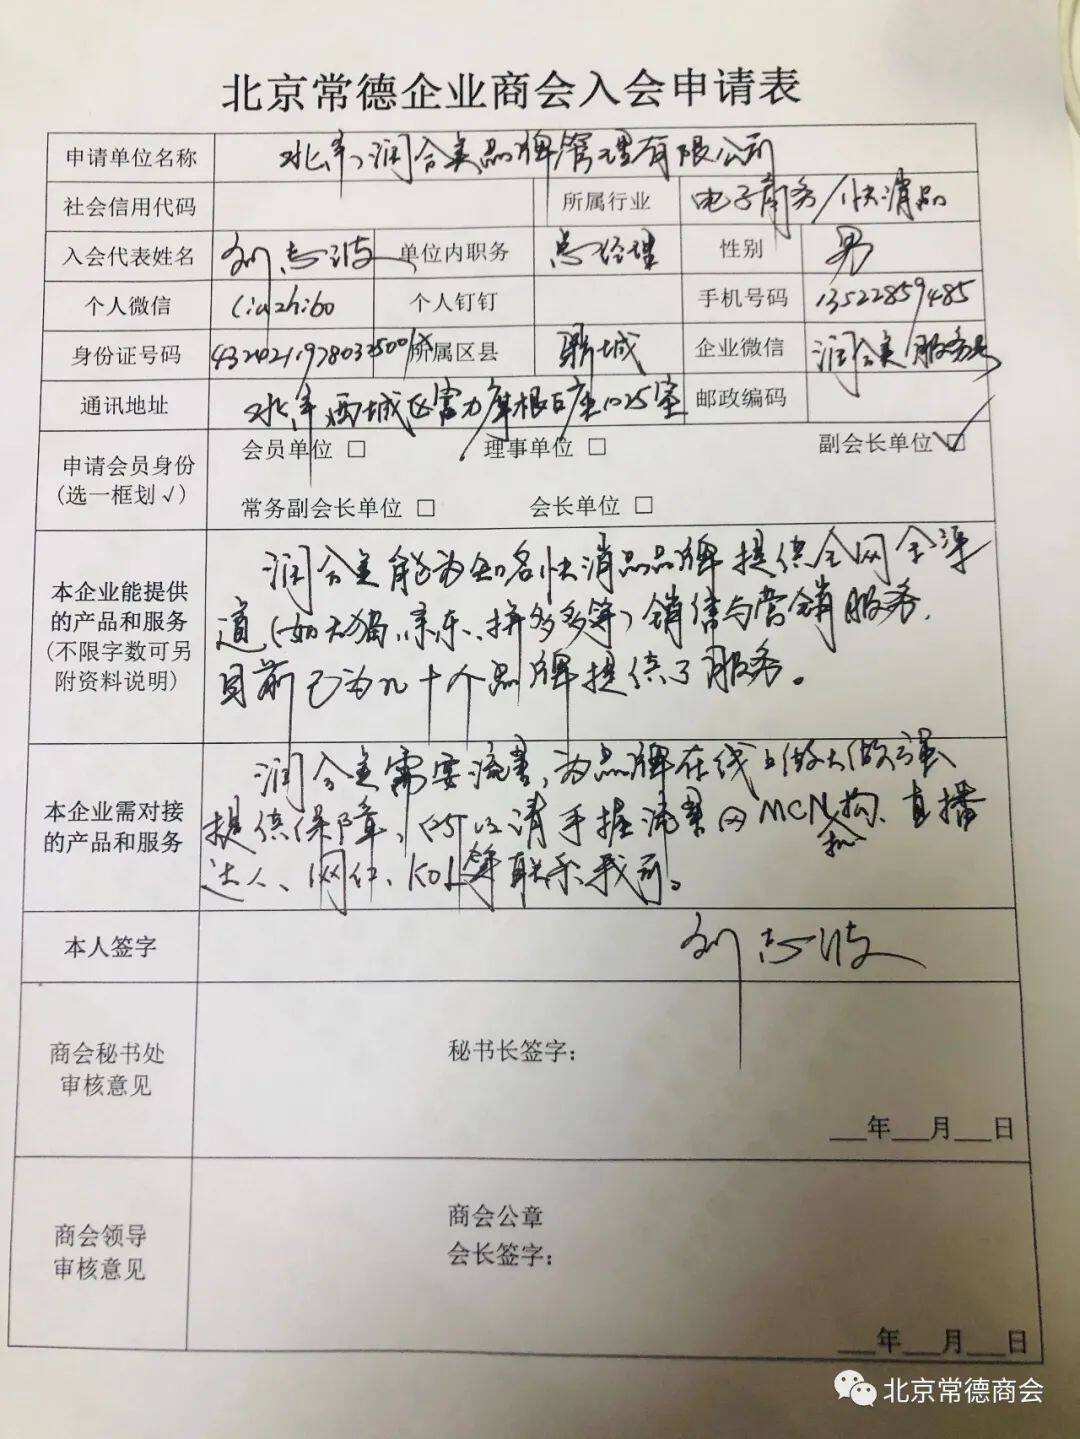 北京常德企业商会入会申请表
申请单位名称 北京润合美品牌管理有限公司
社会信用代码 所属行业 电子商务/快消品
入会代表姓名 刘志波 单位内职务 总经理 性别 男
个人微信 liuzhibo 个人钉钉 手机号码 13522859485
身份证号码 所属区县 鼎城 企业微信 润合美服务号
通讯地址 北京西城区富力摩根B座1025室 邮政编码
会员单位 □ 理事单位 □ 副会长单位 ☑
申请会员身份
(选一框划√)
常务副会长单位 □ 会长单位 □
润合美能为知名快消品品牌提供全网全渠
本企业能提供
的产品和服务
道(如天猫、京东、拼多多等)销售与营销服务.
(不限字数可另
附资料说明)
目前已为几十个品牌提供了服务。
润合美需要流量,为品牌在线上做大做强
本企业需对接
的产品和服务
提供保障,所以请手握流量的MCN机构、直播
达人、网红、KOL等联系我司。
本人签字 刘志波
商会秘书处
审核意见
秘书长签字:
___年___月___日
商会领导
审核意见
商会公章
会长签字:
___年___月___日
北京常德商会